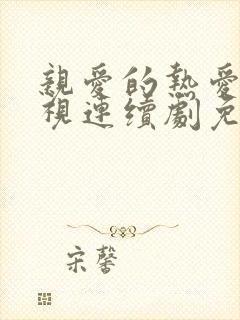 親愛的熱愛
視連續劇免
宋馨